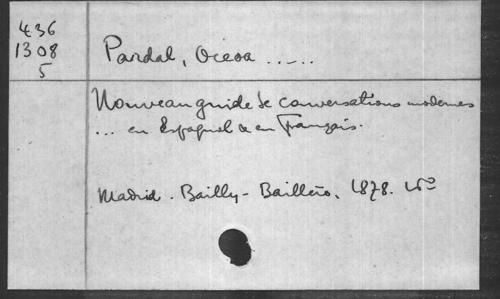 436
1308
5
Pardal, Ocesa ......
Nouveau guide de conversations modernes
... en Espagnol & en Français.
Madrid. Bailly-Baillero. 1878. 16º